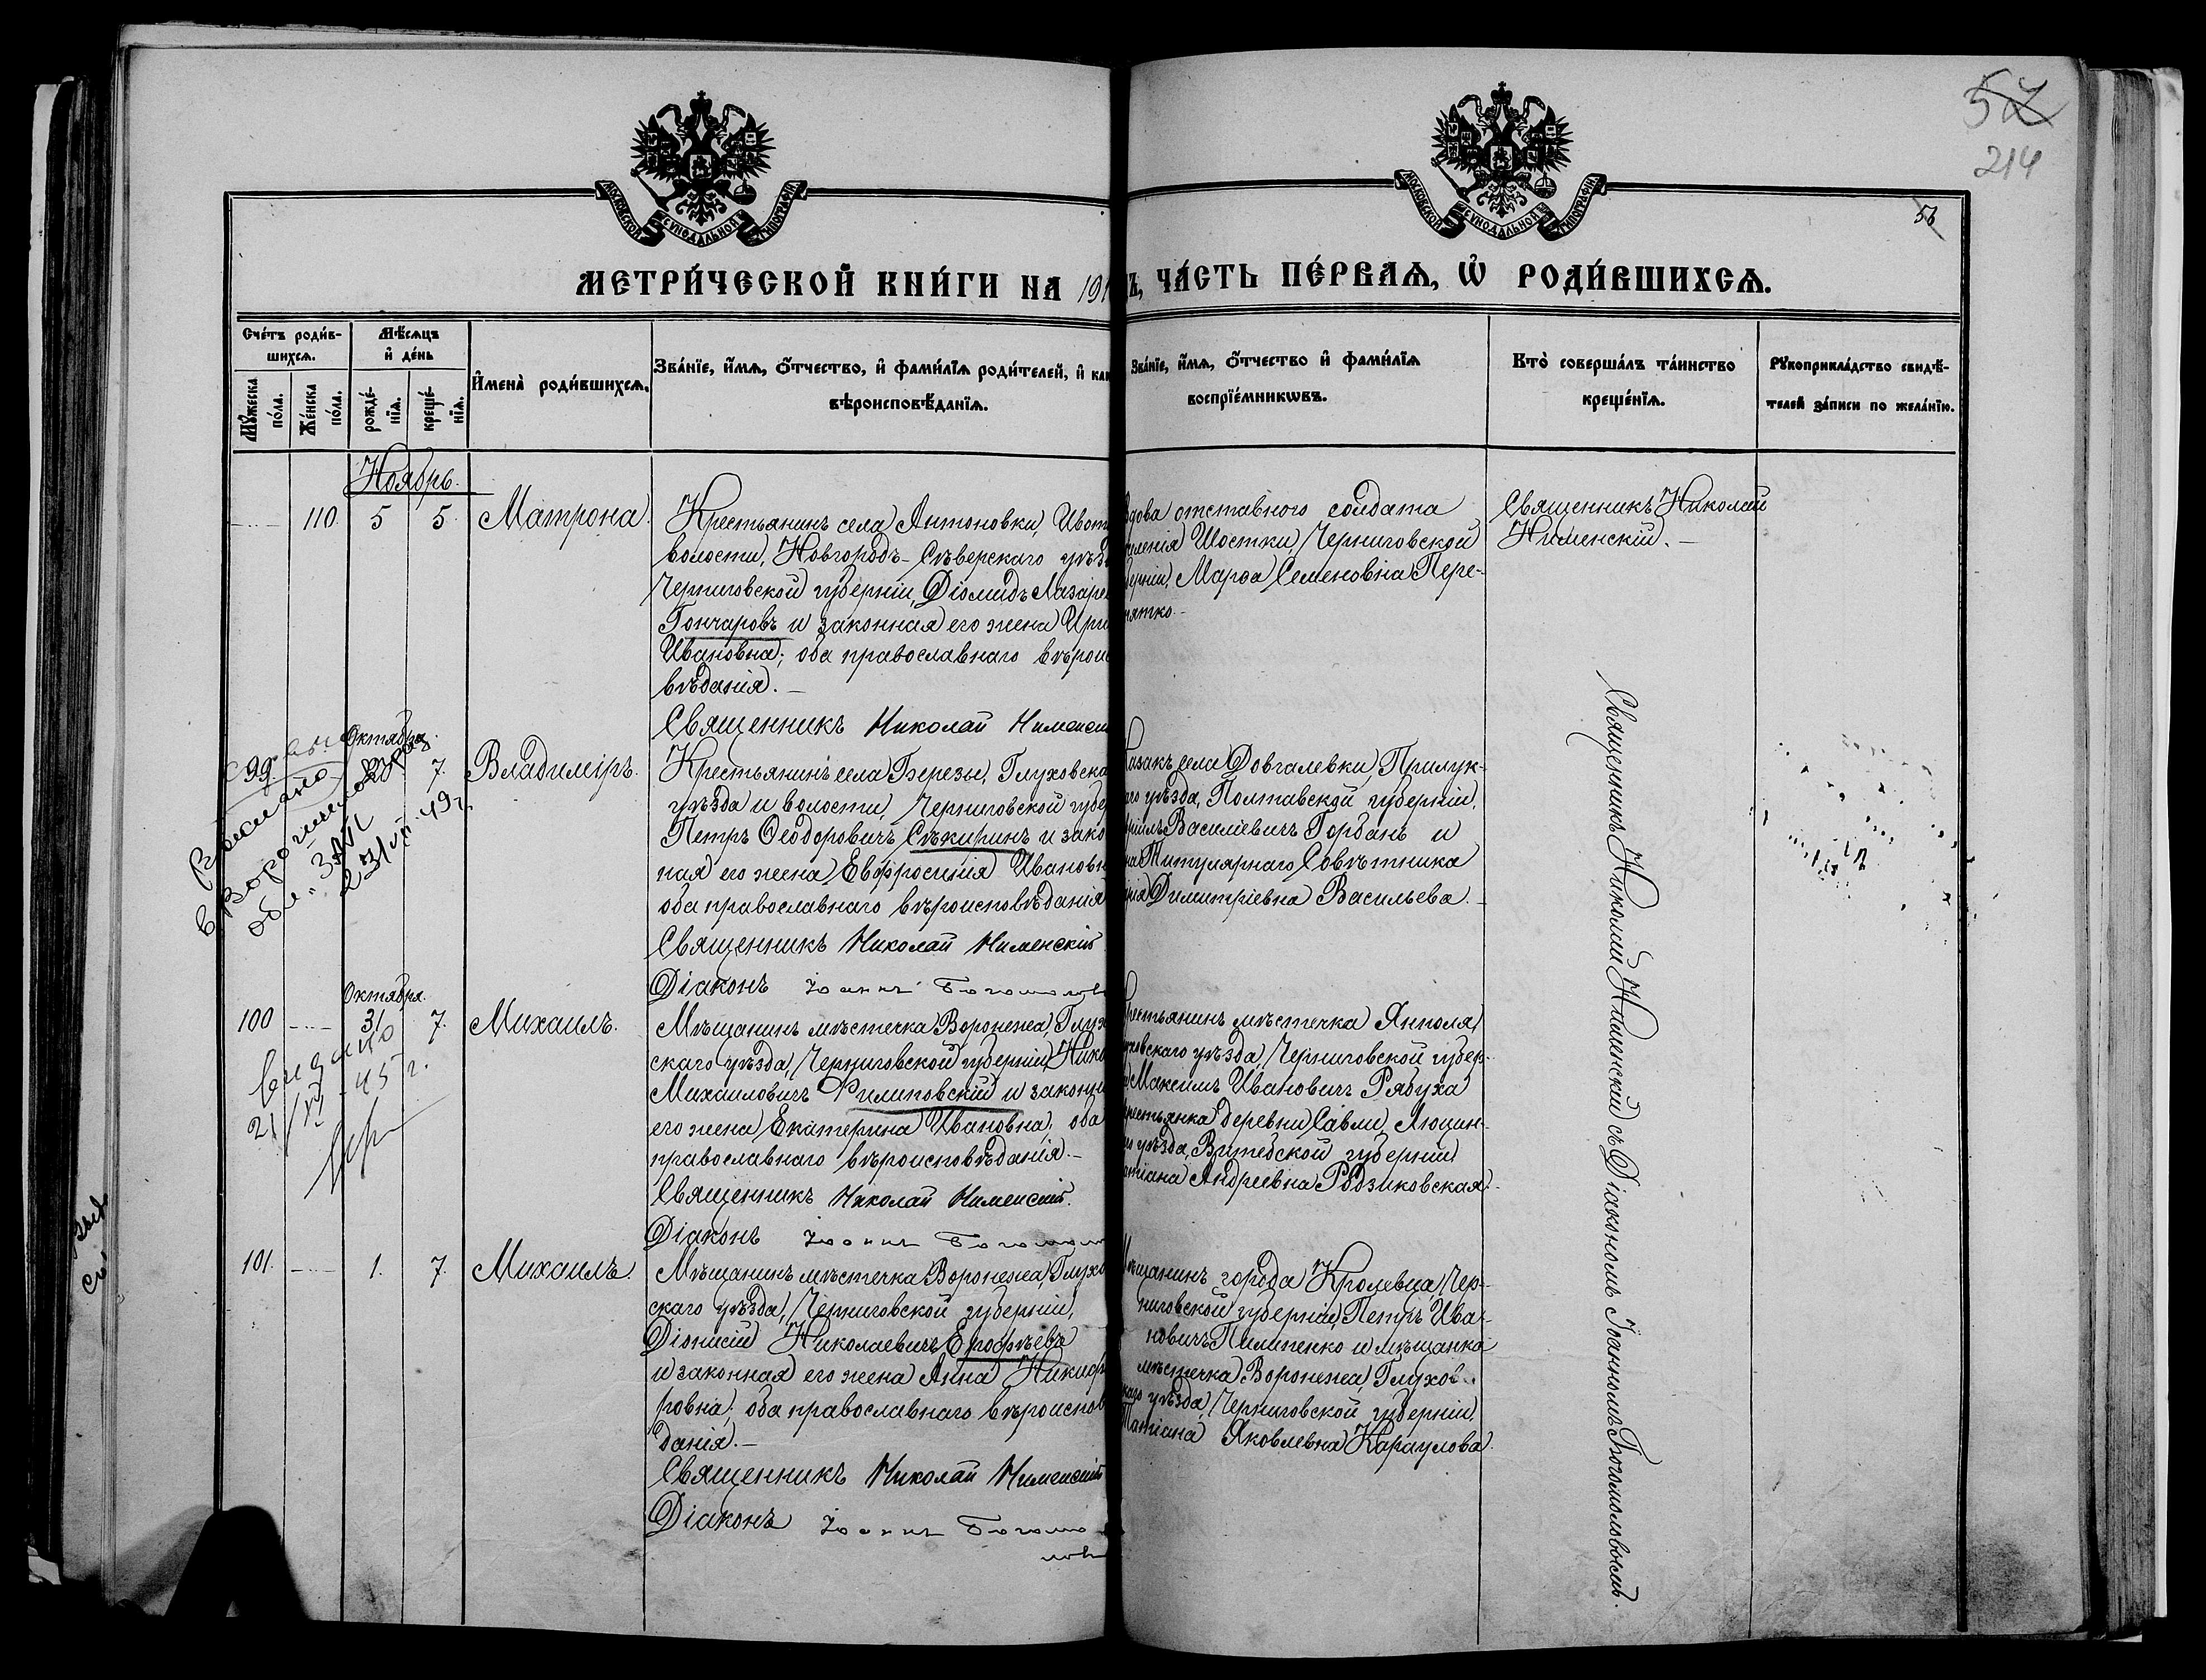 57
214
53
МОСКОВСКОЙ СУНОДАЛЬНОЙ ТИПОГРАФІИ
МОСКОВСКОЙ СУНОДАЛЬНОЙ ТИПОГРАФІИ
МЕТРИ́ЧЕСКОЙ КНИ́ГИ НА 191
Ъ, ЧА́СТЬ ПЕ́РВАѦ, Ѽ РОДИ́ВШИХСѦ.
Сче́тъ роди́в-
шихсѧ.
Мꙋ́жеска по́ла.
Же́нска по́ла.
Мѣ́сѧцъ
и҆ де́нь
рожде́-
нїѧ.
креще́-
нїѧ.
И҆мена̀ роди́вшихсѧ.
Зва́нїе, и҆́мѧ, ѻ҆́тчество, и҆ фами́лїѧ роди́телей, и҆ как
вѣроисповѣ́данїѧ.
Зва́нїе, и҆́мѧ, ѻ҆́тчество и҆ фами́лїѧ
воспрїе́мникѡвъ.
Кто̀ соверша́лъ та́инство
креще́нїѧ.
Рꙋкоприкла́дство свидѣ́-
телей за́писи по жела́нїю.
Ноябрь.
110. 5 5. Матрона.
Крестьянинъ села Антоновки, Ивот
волости, Новгородъ-Сѣверскаго уѣзд
Черниговской губерніи, Діомидъ Лазаре
Гончаровъ и законная его жена Ири
Ивановна; оба православнаго вѣроис
вѣданія.—
Священникъ Николай Нименск
вдова отставного солдата
селенія Шостки, Черниговской
берніи, Марѳа Семеновна Пере-
нятко.
Священникъ Николай
Нименскій.—
Октября.
99. 7. Владиміръ.
Крестьянинъ села Березы, Глуховска
уѣзда и волости, Черниговской губе
Петръ Ѳеодоровичъ Сѣкиринъ и зако
ная его жена Евфросинія Ивановн
оба православнаго вѣроисповѣданія
Священникъ Николай Нименскій
Діаконъ Іоаннъ Богомолов
казакъ села Довгалевки, Прилук-
го уѣзда, Полтавской губерніи,
Василіевичъ Горбань и
на Титулярнаго Совѣтника
Димитріевна Васильева.—
49 г.
Октября.
100 31 7. Михаилъ.
Мѣщанинъ мѣстечка Воронежа, Глух
скаго уѣзда, Черниговской губерніи, Нико
Михаиловичъ Филиповскій и законн
его жена Екатерина Ивановна, оба
православнаго вѣроисповѣданія.—
Священникъ Николай Нименскій.
Діаконъ Іоаннъ Богомол
Крестьянинъ мѣстечка Янполя,
уховскаго уѣзда, Черниговской губер-
Максимъ Ивановичъ Рябуха
крестьянка деревни Савли, Люцин-
го уѣзда, Витебской губерніи
атіана Андреевна Родзиковская.
выдано
21/XI - 45 г.
101. 1. 7. Михаилъ.
Мѣщанинъ мѣстечка Воронежа, Глухо
скаго уѣзда, Черниговской губерніи,
Діонисій Николаевичъ Ерофѣевъ
и законная его жена Анна Никифо
ровна; оба православнаго вѣроиспов
данія.—
Священникъ Николай Нименскій
Діаконъ Іоаннъ Богомо-
лов
Мѣщанинъ города Кролевца, Чер-
ниговской губерніи, Петръ Ива-
новичъ Пилипенко и мѣщанка
мѣстечка Воронежа, Глухов-
скаго уѣзда, Черниговской губерніи,
Татіана Яковлевна Караулова.
Священникъ Николай Нименскій съ Діакономъ Іоанномъ Богомоловымъ.